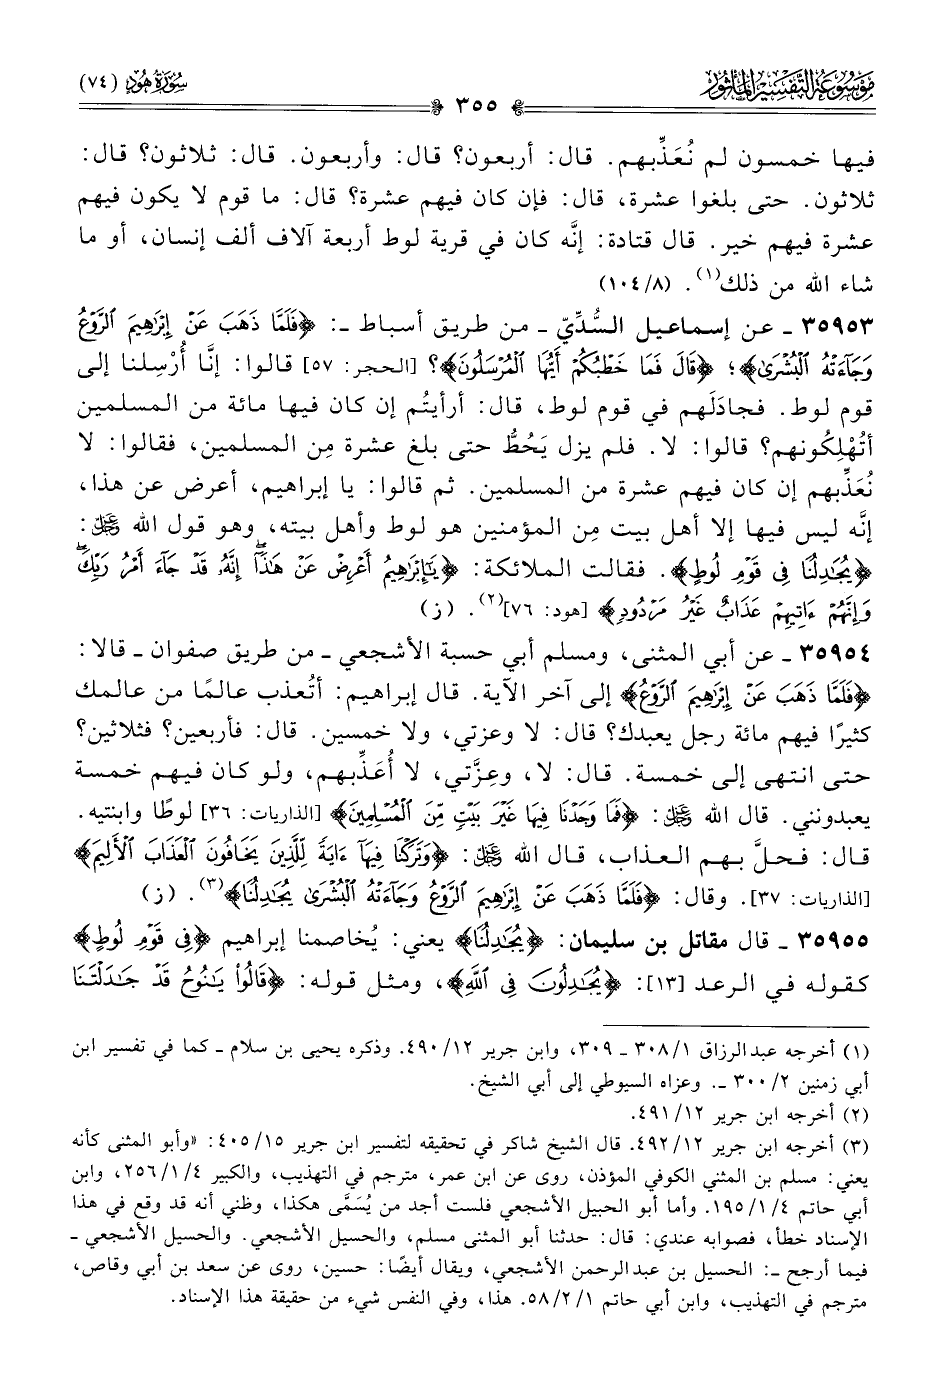 مَوْسُوعَةُ التَّفْسِيرِ المَأْثُورِ
سُورَةُ هُودٍ (٧٤)
٣٥٥
فيها خمسون لم نُعَذِّبهم. قال: أربعون؟ قال: وأربعون. قال: ثلاثون؟ قال:
ثلاثون. حتى بلغوا عشرة، قال: فإن كان فيهم عشرة؟ قال: ما قوم لا يكون فيهم
عشرة فيهم خير. قال قتادة: إنَّه كان في قرية لوط أربعة آلاف ألف إنسان، أو ما
شاء الله من ذلك(١). (٨/ ١٠٤)
٣٥٩٥٣ ـ عن إسماعيل السُّدِّيّ ـ من طريق أسباط ـ: ﴿فَلَمَّا ذَهَبَ عَنْ إِبْرَٰهِيمَ ٱلرَّوْعُ
وَجَآءَتْهُ ٱلْبُشْرَىٰ﴾؛ ﴿قَالَ فَمَا خَطْبُكُمْ أَيُّهَا ٱلْمُرْسَلُونَ﴾؟ [الحجر: ٥٧] قالوا: إنَّا أُرْسِلنا إلى
قوم لوط. فجادَلَهم في قوم لوط، قال: أرأيتُم إن كان فيها مائة من المسلمين
أتُهْلِكونهم؟ قالوا: لا. فلم يزل يَحُطُّ حتى بلغ عشرة مِن المسلمين، فقالوا: لا
نُعَذِّبهم إن كان فيهم عشرة من المسلمين. ثم قالوا: يا إبراهيم، أعرض عن هذا،
إنَّه ليس فيها إلا أهل بيت مِن المؤمنين هو لوط وأهل بيته، وهو قول الله ﷿:
﴿يُجَٰدِلُنَا فِى قَوْمِ لُوطٍ﴾. فقالت الملائكة: ﴿يَٰٓإِبْرَٰهِيمُ أَعْرِضْ عَنْ هَٰذَآ إِنَّهُۥ قَدْ جَآءَ أَمْرُ رَبِّكَ
وَإِنَّهُمْ ءَاتِيهِمْ عَذَابٌ غَيْرُ مَرْدُودٍ﴾ [هود: ٧٦](٢). (ز)
٣٥٩٥٤ ـ عن أبي المثنى، ومسلم أبي حسبة الأشجعي ـ من طريق صفوان ـ قالا:
﴿فَلَمَّا ذَهَبَ عَنْ إِبْرَٰهِيمَ ٱلرَّوْعُ﴾ إلى آخر الآية. قال إبراهيم: أتُعذب عالمًا من عالمك
كثيرًا فيهم مائة رجل يعبدك؟ قال: لا وعزتي، ولا خمسين. قال: فأربعين؟ فثلاثين؟
حتى انتهى إلى خمسة. قال: لا، وعِزَّتي، لا أُعَذِّبهم، ولو كان فيهم خمسة
يعبدونني. قال الله ﷿: ﴿فَمَا وَجَدْنَا فِيهَا غَيْرَ بَيْتٍ مِّنَ ٱلْمُسْلِمِينَ﴾ [الذاريات: ٣٦] لوطًا وابنتيه.
قال: فحلَّ بهم العذاب، قال الله ﷿: ﴿وَتَرَكْنَا فِيهَآ ءَايَةً لِّلَّذِينَ يَخَافُونَ ٱلْعَذَابَ ٱلْأَلِيمَ﴾
[الذاريات: ٣٧]. وقال: ﴿فَلَمَّا ذَهَبَ عَنْ إِبْرَٰهِيمَ ٱلرَّوْعُ وَجَآءَتْهُ ٱلْبُشْرَىٰ يُجَٰدِلُنَا﴾(٣). (ز)
٣٥٩٥٥ ـ قال مقاتل بن سليمان: ﴿يُجَٰدِلُنَا﴾ يعني: يُخاصمنا إبراهيم ﴿فِى قَوْمِ لُوطٍ﴾
كقوله في الرعد [١٣]: ﴿يُجَٰدِلُونَ فِى ٱللَّهِ﴾، ومثل قوله: ﴿قَالُوا۟ يَٰنُوحُ قَدْ جَٰدَلْتَنَا
(١) أخرجه عبدالرزاق ١/ ٣٠٨ ـ ٣٠٩، وابن جرير ١٢/ ٤٩٠. وذكره يحيى بن سلام ـ كما في تفسير ابن
أبي زمنين ٢/ ٣٠٠ ـ. وعزاه السيوطي إلى أبي الشيخ.
(٢) أخرجه ابن جرير ١٢/ ٤٩١.
(٣) أخرجه ابن جرير ١٢/ ٤٩٢. قال الشيخ شاكر في تحقيقه لتفسير ابن جرير ١٥/ ٤٠٥: «وأبو المثنى كأنه
يعني: مسلم بن المثني الكوفي المؤذن، روى عن ابن عمر، مترجم في التهذيب، والكبير ٤/ ١/ ٢٥٦، وابن
أبي حاتم ٤/ ١/ ١٩٥. وأما أبو الحبيل الأشجعي فلست أجد من يُسَمَّى هكذا، وظني أنه قد وقع في هذا
الإسناد خطأ، فصوابه عندي: قال: حدثنا أبو المثنى مسلم، والحسيل الأشجعي. والحسيل الأشجعي ـ
فيما أرجح ـ: الحسيل بن عبدالرحمن الأشجعي، ويقال أيضًا: حسين، روى عن سعد بن أبي وقاص،
مترجم في التهذيب، وابن أبي حاتم ١/ ٢/ ٥٨. هذا، وفي النفس شيء من حقيقة هذا الإسناد.